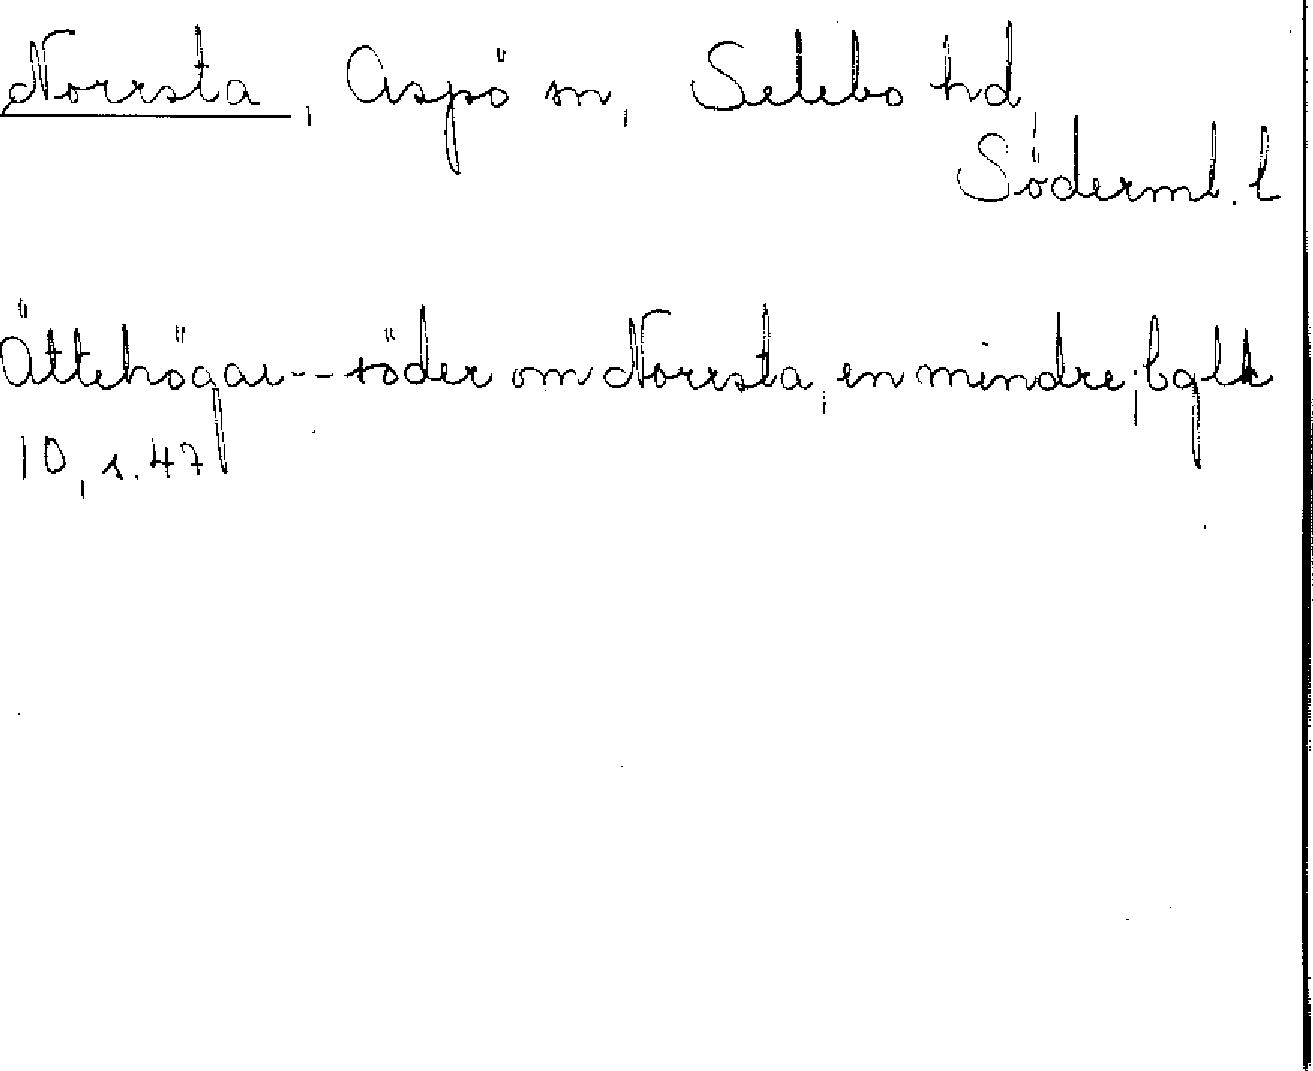 Norrsta, Aspö sn, Selebo hd
Söderml. l
Ättehögar -- söder om Norrsta, en mindre; bglk
10, s. 47